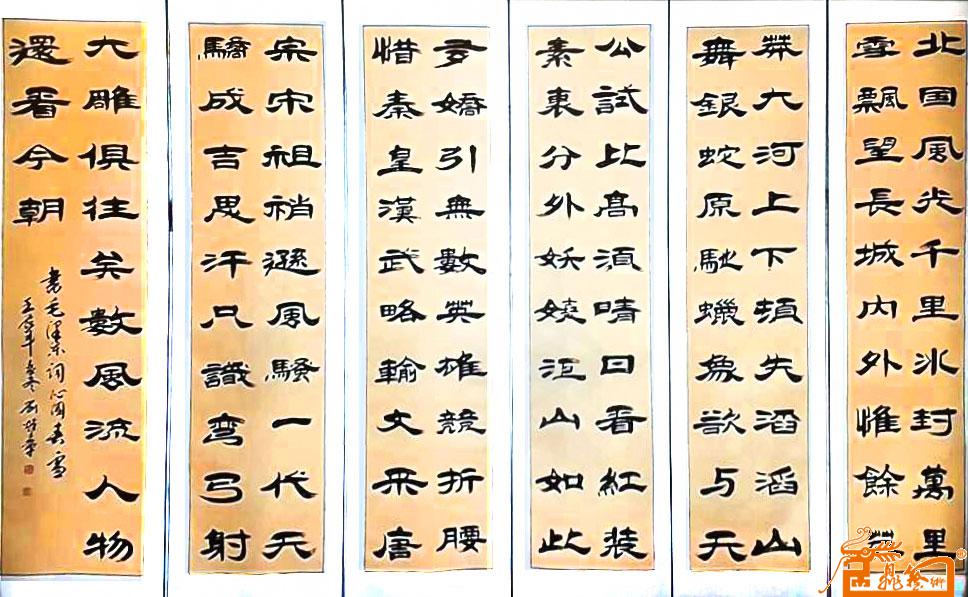 北国風光千里冰封萬里
雪飄望長城内外惟餘莽
莽大河上下頓失滔滔山
舞銀蛇原馳蠟象欲与天
公試比高須晴日看紅装
素裹分外妖娆江山如此
多嬌引無數英雄競折腰
惜秦皇漢武略輸文采唐
宗宋祖稍遜風騷一代天
驕成吉思汗只識弯弓射
大雕俱往矣數風流人物
還看今朝
書毛澤東詞沁園春雪